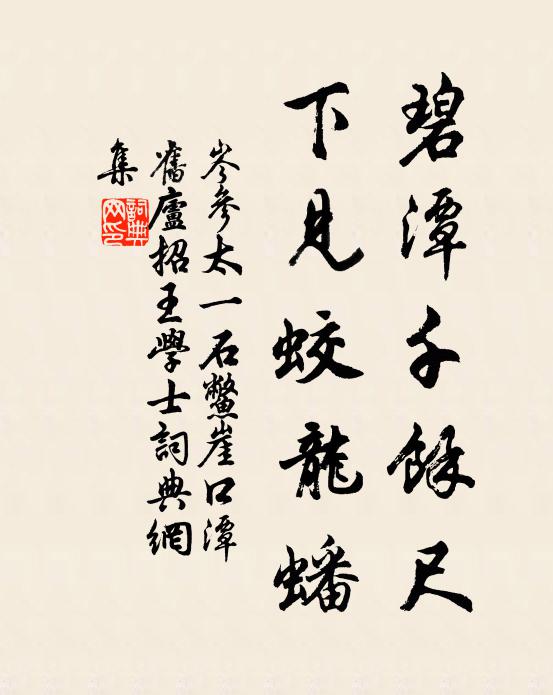 碧潭千餘尺
下見蛟龍蟠
岑參太一石鱉崖口潭
舊廬招王學士詞典網
集
詞典網印